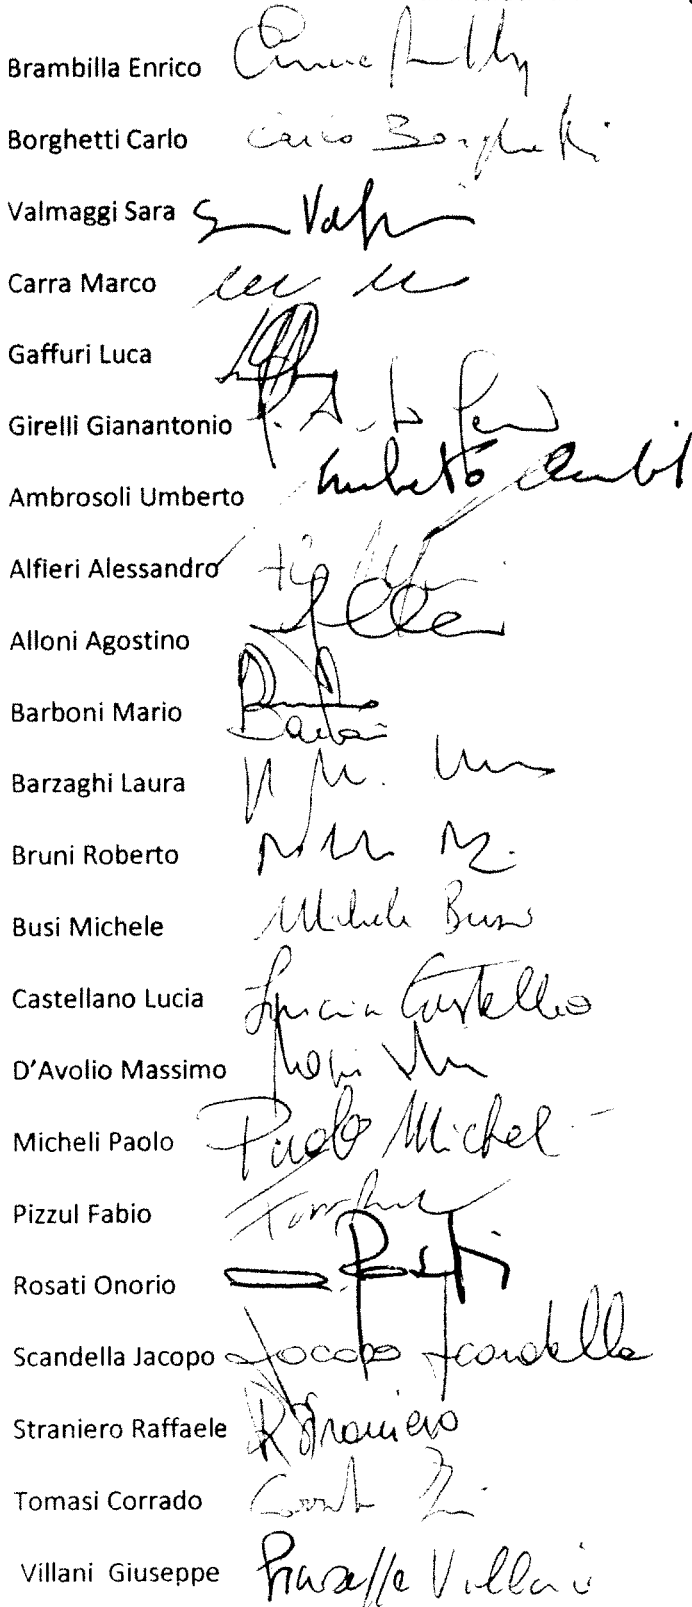 Brambilla Enrico
Borghetti Carlo Carlo Borghetti
Valmaggi Sara
Carra Marco
Gaffuri Luca
Girelli Gianantonio
Ambrosoli Umberto Umberto
Alfieri Alessandro
Alloni Agostino
Barboni Mario Barboni
Barzaghi Laura
Bruni Roberto
Busi Michele Michele Busi
Castellano Lucia Lucia Castellano
D'Avolio Massimo
Micheli Paolo Paolo Micheli
Pizzul Fabio
Rosati Onorio Rosati
Scandella Jacopo Jacopo Scandella
Straniero Raffaele R Straniero
Tomasi Corrado
Villani Giuseppe Giuseppe Villani